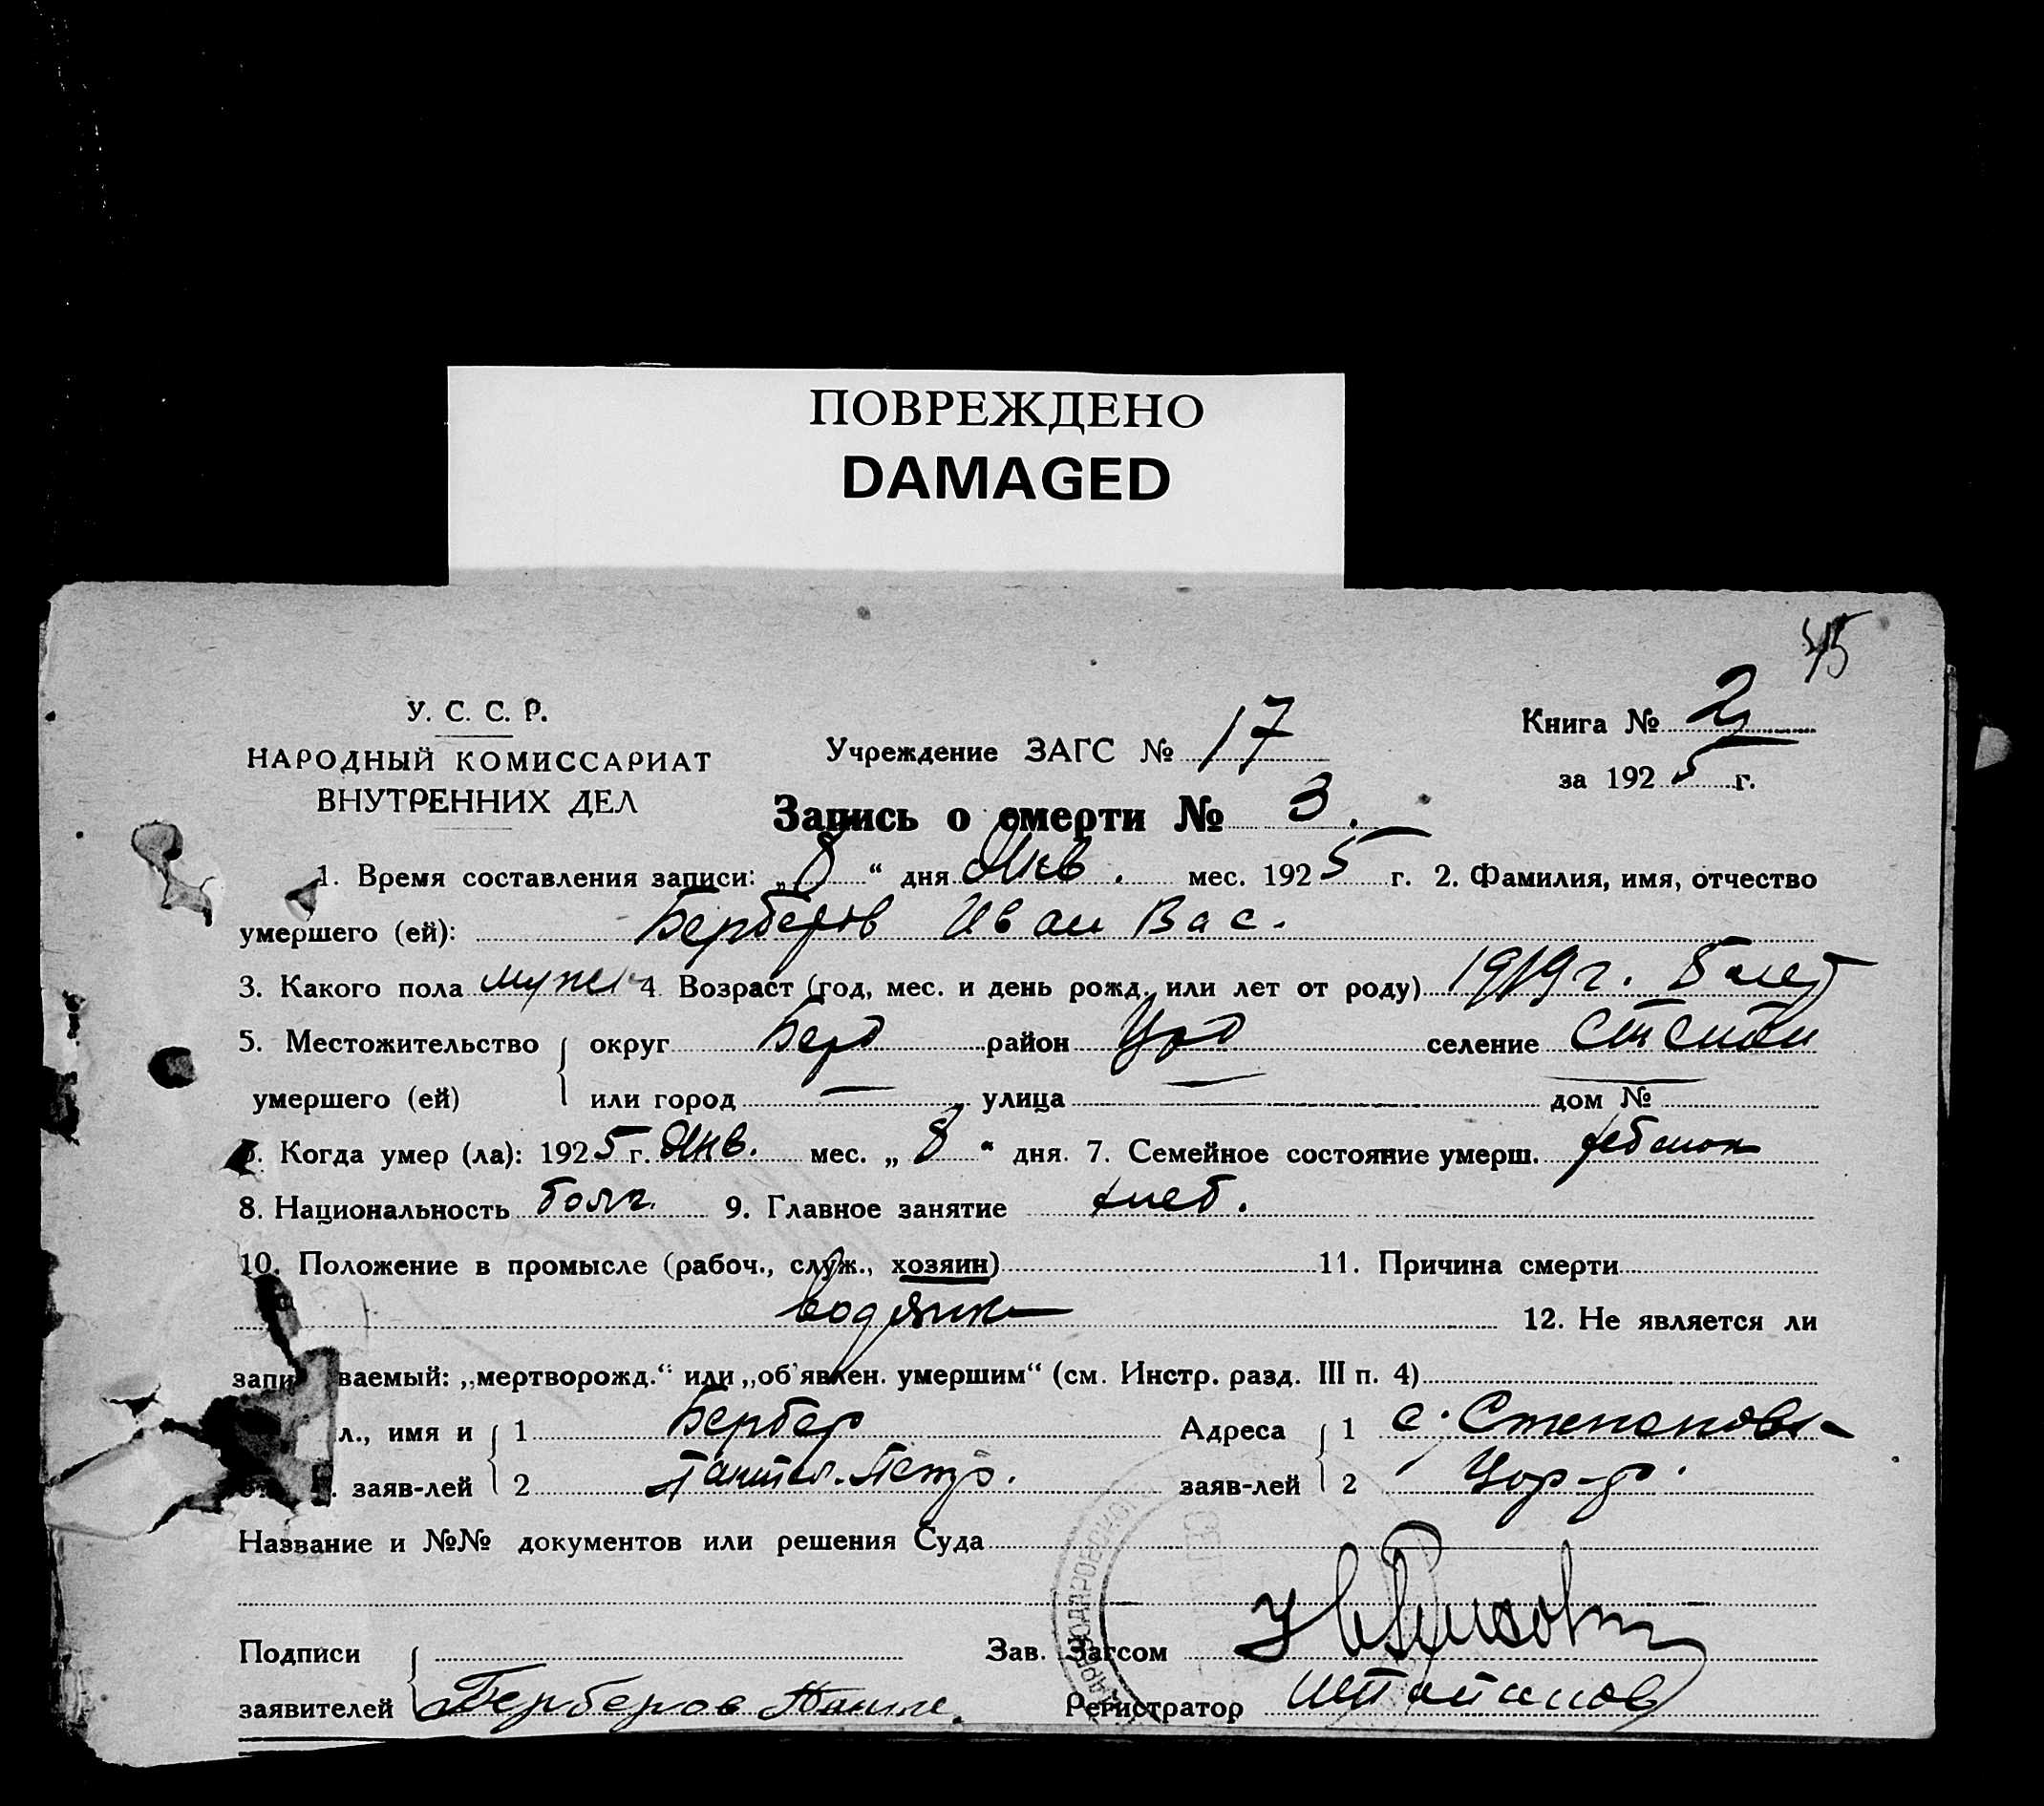 ПОВРЕЖДЕНО
DAMAGED
45
У. С. С. Р.
НАРОДНЫЙ КОМИССАРИАТ
ВНУТРЕННИХ ДЕЛ
Учреждение ЗАГС № 17
Книга № 2
за 1925 г.
Запись о смерти № 3.
1. Время составления записи: „8“ дня Янв. мес. 1925 г. 2. Фамилия, имя, отчество
умершего (ей): Берберов Иван Вас.
3. Какого пола мужс 4. Возраст (год, мес. и день рожд. или лет от роду) 1919 г. 5 лет
5. Местожительство округ Берд район Цар селение
умершего (ей) или город — улица — дом № —
6. Когда умер (ла): 1925 г. Янв. мес. „8“ дня. 7. Семейное состояние умерш. ребенок
8. Национальность болг. 9. Главное занятие хлеб.
10. Положение в промысле (рабоч., служ., хозяин) 11. Причина смерти
водянка
12. Не является ли
запи ваемый: „мертворожд.“ или „об'явлен. умершим“ (см. Инстр. разд. III п. 4)
л., имя и 1 Бербер Адреса 1 с. Степановка
заяв-лей 2 Пантел. Петр. заяв-лей 2 Цар-р.
Название и №№ документов или решения Суда
Подписи Зав. Загсом
заявителей Берберов Регистратор